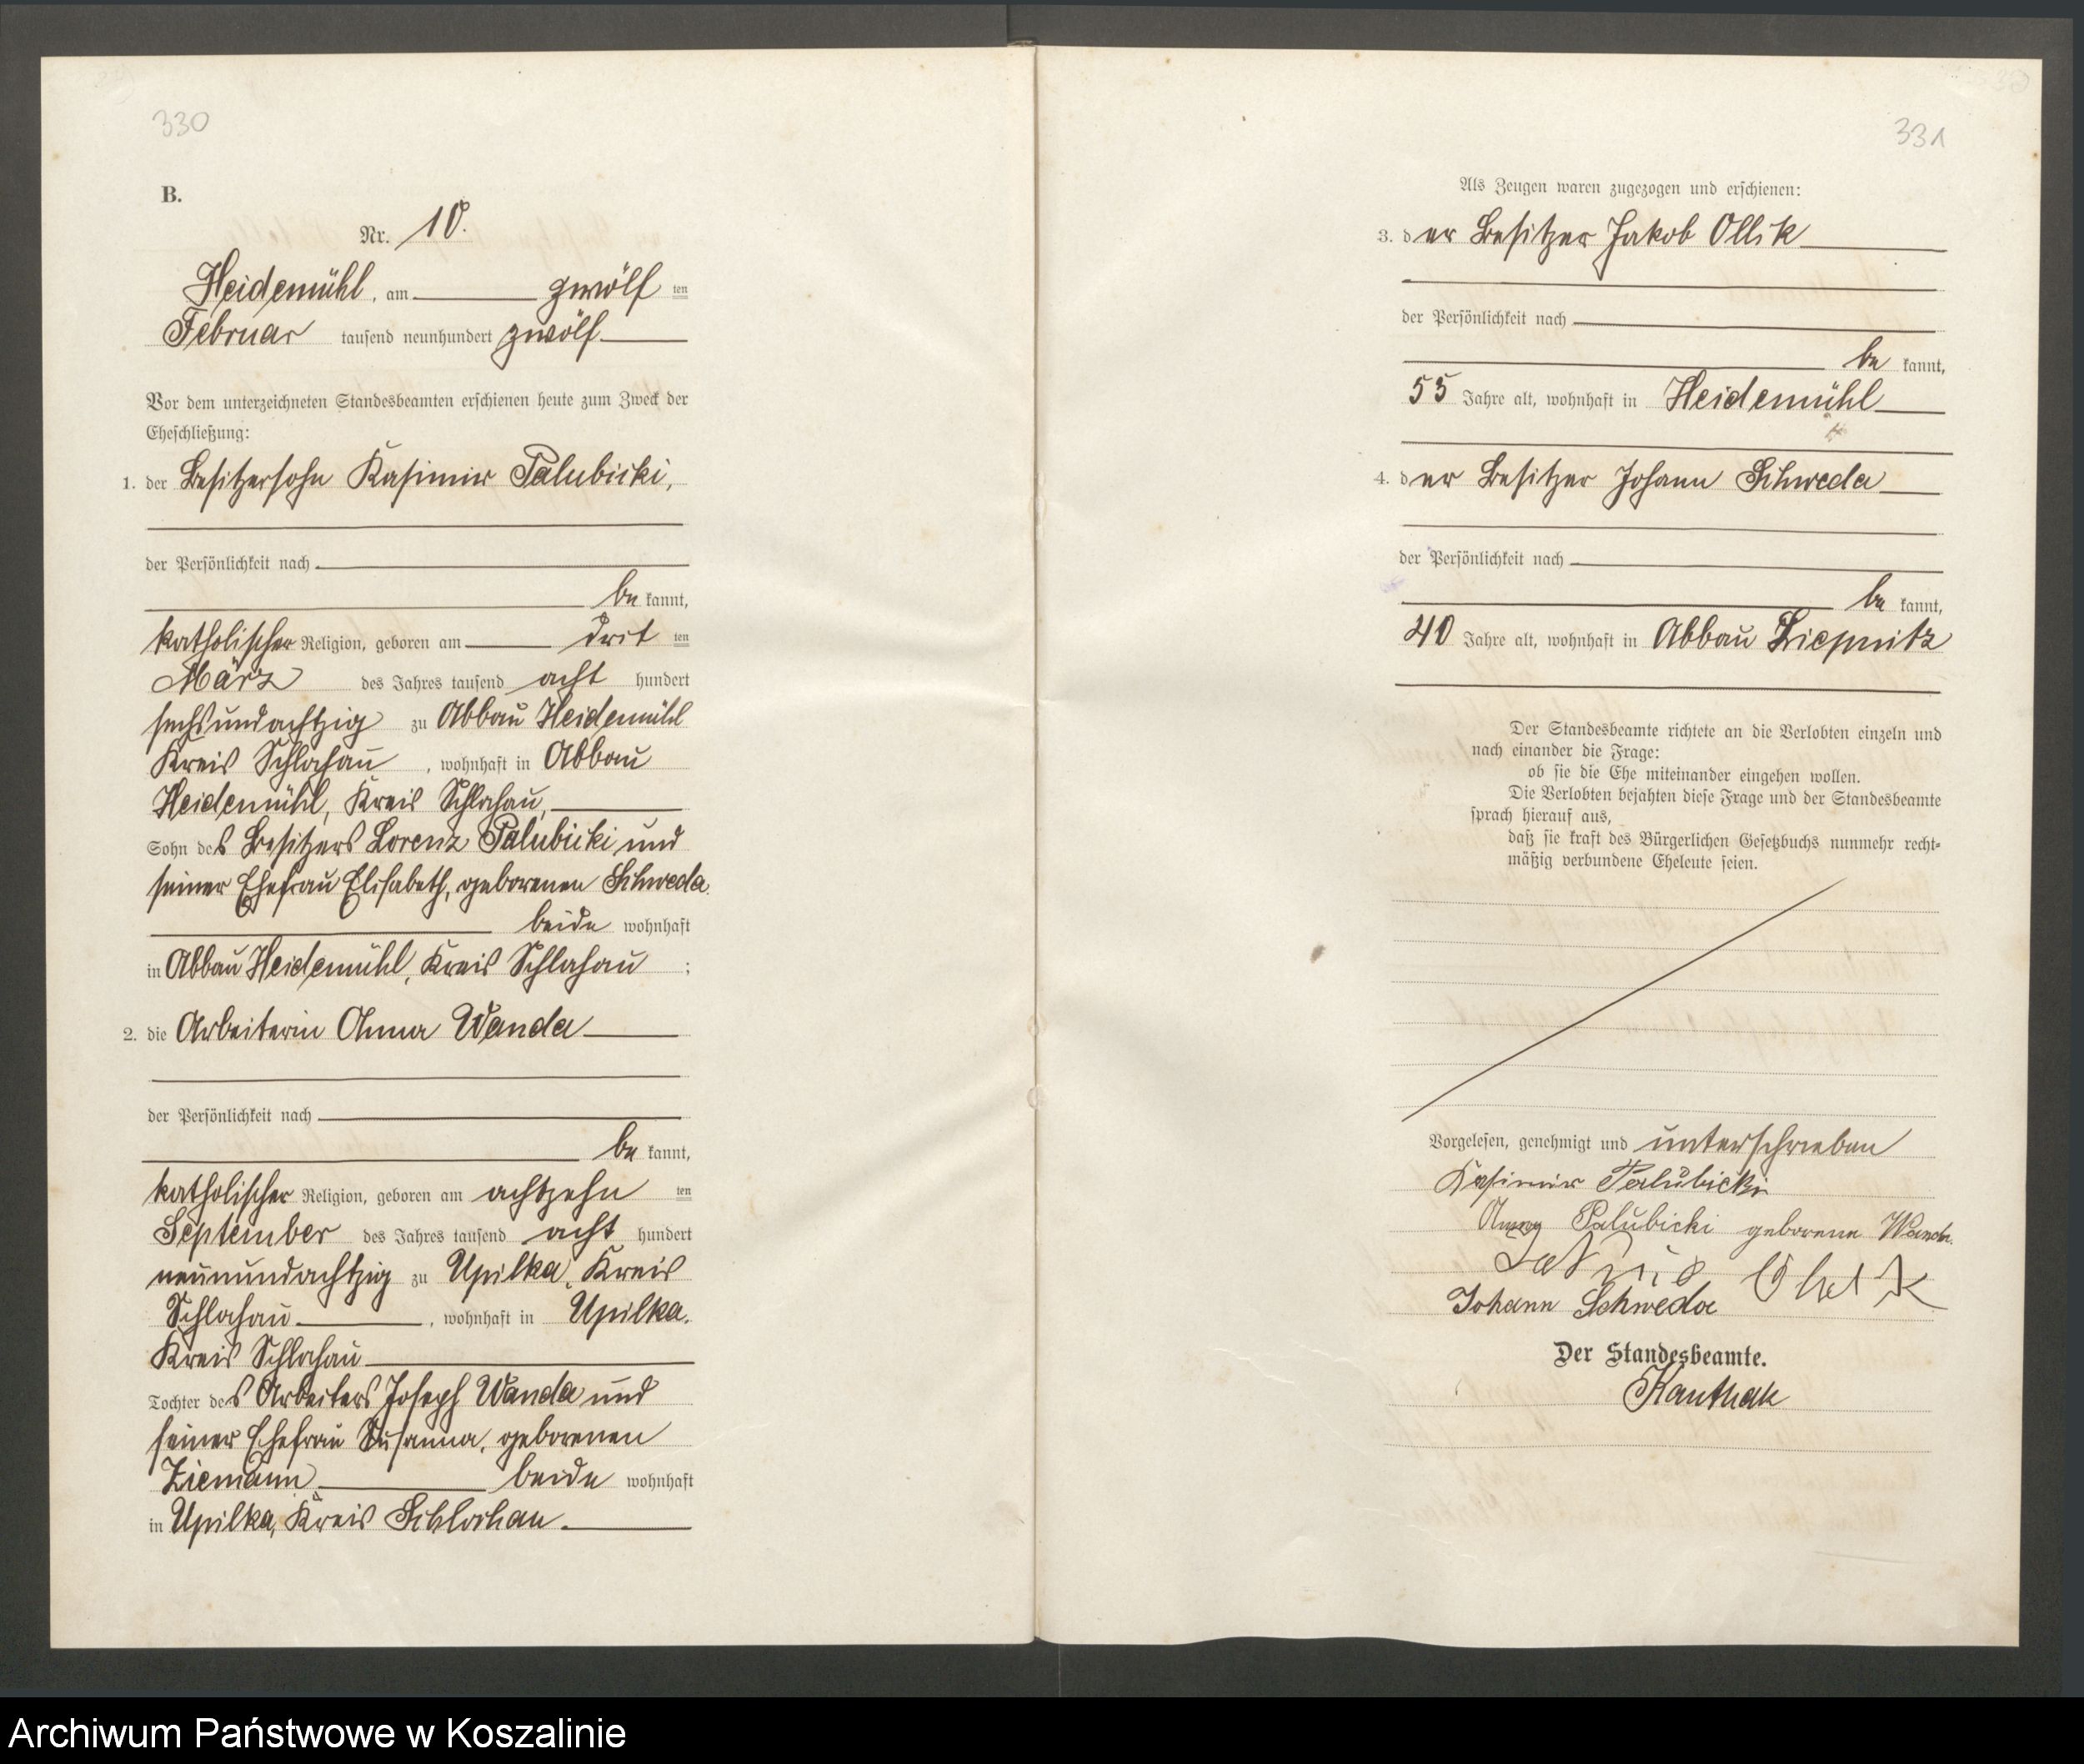 330
B.
Nr. 10.
Heidemühl, am zwölf ten
Februar tausend neunhundert zwölf
Vor dem unterzeichneten Standesbeamten erschienen heute zum Zweck der
Eheschließung:
1. der Besitzersohn Kasimir Palubicki,
der Persönlichkeit nach
be kannt,
katholischer Religion, geboren am drit ten
März des Jahres tausend acht hundert
sechsundachtzig zu Abbau Heidemühl
Kreis Schlochau, wohnhaft in Abbau
Heidemühl, Kreis Schlochau,
Sohn des Besitzers Lorenz Palubicki und
seiner Ehefrau Elisabeth, geborenen Schweda
beide wohnhaft
in Abbau Heidemühl, Kreis Schlochau ;
2. die Arbeiterin Anna Wanda
der Persönlichkeit nach
be kannt,
katholischer Religion, geboren am achtzehn ten
September des Jahres tausend acht hundert
neunundachtzig zu Upilka, Kreis
Schlochau, wohnhaft in Upilka,
Kreis Schlochau
Tochter des Arbeiters Joseph Wanda und
seiner Ehefrau Susanna, geborenen
Ziemann beide wohnhaft
in Upilka, Kreis Schlochau.
331
Als Zeugen waren zugezogen und erschienen:
3. der Besitzer Jakob Ollik
der Persönlichkeit nach
be kannt,
55 Jahre alt, wohnhaft in Heidemühl
4. der Besitzer Johann Schweda
der Persönlichkeit nach
be kannt,
40 Jahre alt, wohnhaft in Abbau Liepnitz
Der Standesbeamte richtete an die Verlobten einzeln und
nach einander die Frage:
ob sie die Ehe miteinander eingehen wollen.
Die Verlobten bejahten diese Frage und der Standesbeamte
sprach hierauf aus,
daß sie kraft des Bürgerlichen Gesetzbuchs nunmehr recht-
mäßig verbundene Eheleute seien.
Vorgelesen, genehmigt und unterschrieben
Kasimir Palubicki
Anna Palubicki geborene Wanda
Johann Schweda
Der Standesbeamte.
Kanthak
Archiwum Państwowe w Koszalinie